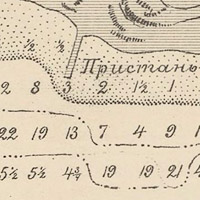 ½ ½
Пристань
2 8 3 2 1½ 1
22 19 13 7 4 9
5½ 5½ 4¾ 19 19 21